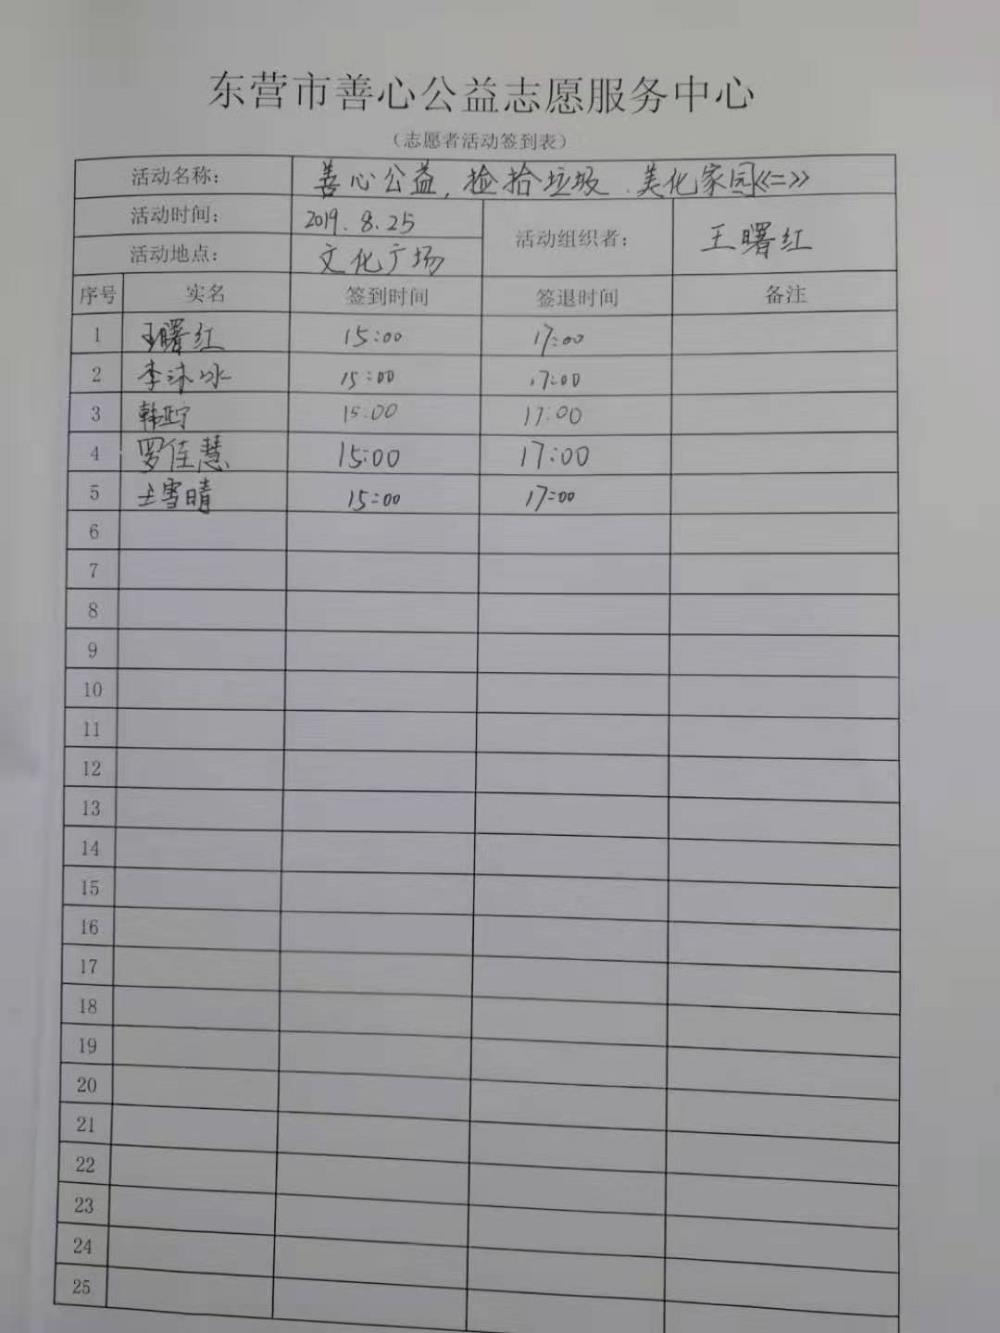 东营市善心公益志愿服务中心
（志愿者活动签到表）
活动名称： 善心公益，捡拾垃圾．美化家园《二》
活动时间： 2019.8.25 活动组织者： 王曙红
活动地点： 文化广场
序号 实名 签到时间 签退时间 备注
1 王曙红 15:00 17:00
2 李沐冰 15:00 17:00
3 15:00 17:00
4 罗佳慧 15:00 17:00
5 王雪晴 15:00 17:00
6
7
8
9
10
11
12
13
14
15
16
17
18
19
20
21
22
23
24
25